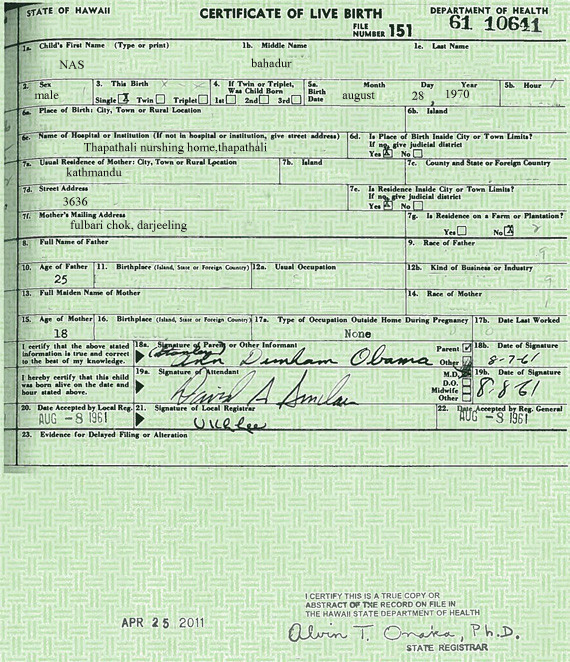 STATE OF HAWAII CERTIFICATE OF LIVE BIRTH DEPARTMENT OF HEALTH
FILE NUMBER 151 61 10641
1a. Child's First Name (Type or print) 1b. Middle Name 1c. Last Name
NAS bahadur
2. Sex 3. This Birth 4. If Twin or Triplet, Was Child Born 5a. Birth Date Month Day Year 5b. Hour
male Single X Twin Triplet 1st 2nd 3rd august 28, 1970
6a. Place of Birth: City, Town or Rural Location 6b. Island
6c. Name of Hospital or Institution (If not in hospital or institution, give street address) 6d. Is Place of Birth Inside City or Town Limits? If no, give judicial district
Thapathali nurshing home,thapathali Yes X No
7a. Usual Residence of Mother: City, Town or Rural Location 7b. Island 7c. County and State or Foreign Country
kathmandu
7d. Street Address 7e. Is Residence Inside City or Town Limits? If no, give judicial district
3636 Yes X No
7f. Mother's Mailing Address 7g. Is Residence on a Farm or Plantation?
fulbari chok, darjeeling Yes No X
8. Full Name of Father 9. Race of Father
10. Age of Father 11. Birthplace (Island, State or Foreign Country) 12a. Usual Occupation 12b. Kind of Business or Industry
25
13. Full Maiden Name of Mother 14. Race of Mother
15. Age of Mother 16. Birthplace (Island, State or Foreign Country) 17a. Type of Occupation Outside Home During Pregnancy 17b. Date Last Worked
18 None
I certify that the above stated information is true and correct to the best of my knowledge. 18a. Signature of Parent or Other Informant Parent Other 18b. Date of Signature
(Stanley) Ann Dunham Obama 8-7-61
I hereby certify that this child was born alive on the date and hour stated above. 19a. Signature of Attendant M.D. D.O. Midwife Other 19b. Date of Signature
David A Sinclair 8-8-61
20. Date Accepted by Local Reg. 21. Signature of Local Registrar 22. Date Accepted by Reg. General
AUG -8 1961 AUG -8 1961
23. Evidence for Delayed Filing or Alteration
APR 25 2011
I CERTIFY THIS IS A TRUE COPY OR
ABSTRACT OF THE RECORD ON FILE IN
THE HAWAII STATE DEPARTMENT OF HEALTH
Alvin T. Onaka, Ph.D.
STATE REGISTRAR